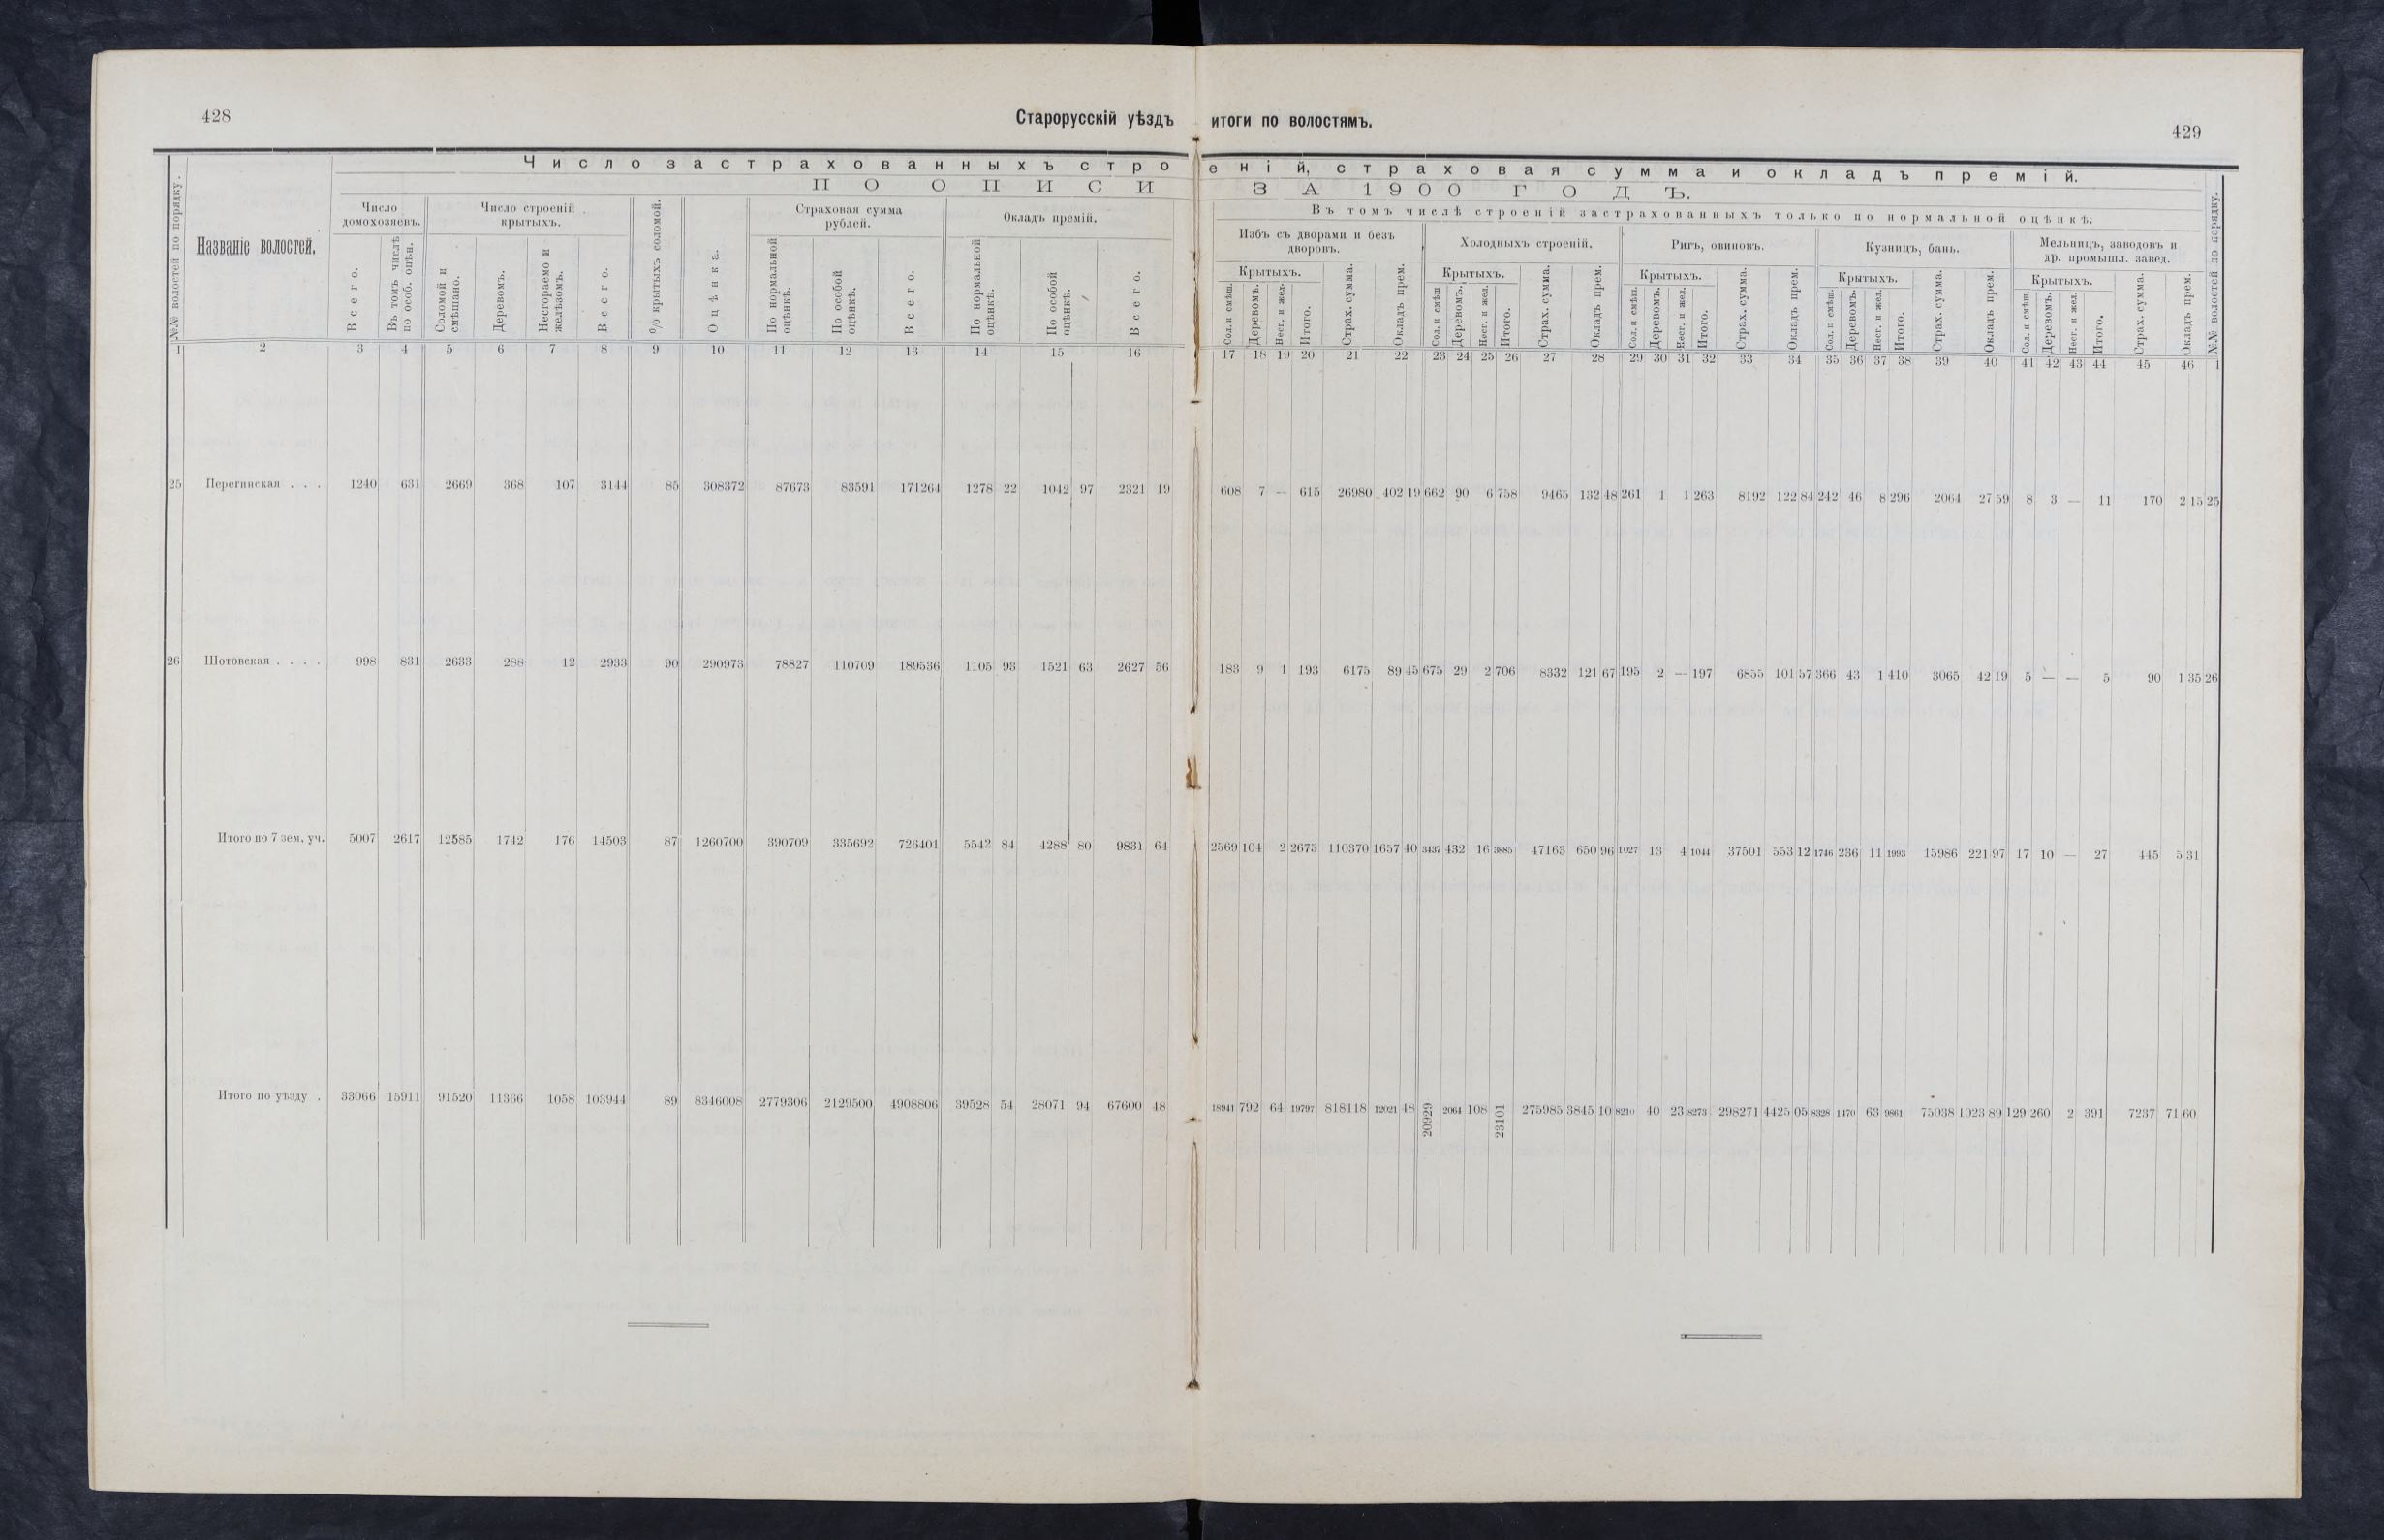 428
Старорусскій уѣздъ
итоги по волостямъ.
429
Число застрахованныхъ строеній, страховая сумма и окладъ премій.
ПО ОПИСИ ЗА 1900 ГОДЪ.
№№ волостей по порядку.
Названіе волостей.
Число домохозяевъ.
Всего.
Въ томъ числѣ по особ. оцѣн.
Число строеній крытыхъ.
Соломой и смѣшано.
Деревомъ.
Несгораемо и желѣзомъ.
Всего.
% крытыхъ соломой.
Оцѣнка.
Страховая сумма рублей.
По нормальной оцѣнкѣ.
По особой оцѣнкѣ.
Всего.
Окладъ премій.
По нормальной оцѣнкѣ.
По особой оцѣнкѣ.
Всего.
Въ томъ числѣ строеній застрахованныхъ только по нормальной оцѣнкѣ.
Избъ съ дворами и безъ дворовъ.
Крытыхъ.
Сол. и смѣш.
Деревомъ.
Несг. и жел.
Итого.
Страх. сумма.
Окладъ прем.
Холодныхъ строеній.
Крытыхъ.
Сол. и смѣш
Деревомъ.
Несг. и жел.
Итого.
Страх. сумма.
Окладъ прем.
Ригъ, овиновъ.
Крытыхъ.
Сол. и смѣш.
Деревомъ.
Несг. и жел.
Итого.
Страх. сумма.
Окладъ прем.
Кузницъ, бань.
Крытыхъ.
Сол. и смѣш.
Деревомъ.
Несг. и жел.
Итого.
Страх. сумма.
Окладъ прем.
Мельницъ, заводовъ и др. промышл. завед.
Крытыхъ.
Сол. и смѣш.
Деревомъ.
Несг. и жел.
Итого.
Страх. сумма.
Окладъ прем.
№№ волостей по порядку.
1 2 3 4 5 6 7 8 9 10 11 12 13 14 15 16 17 18 19 20 21 22 23 24 25 26 27 28 29 30 31 32 33 34 35 36 37 38 39 40 41 42 43 44 45 46 1
25 Перегинская . . . 1240 631 2669 368 107 3144 85 308372 87673 83591 171264 1278 22 1042 97 2321 19 608 7 — 615 26980 402 19 662 90 6 758 9465 132 48 261 1 1 263 8192 122 84 242 46 8 296 2064 27 59 8 3 — 11 170 2 15 25
26 Шотовская . . . . 998 831 2633 288 12 2933 90 290973 78827 110709 189536 1105 93 1521 63 2627 56 183 9 1 193 6175 89 45 675 29 2 706 8332 121 67 195 2 — 197 6855 101 57 366 43 1 410 3065 42 19 5 — — 5 90 1 35 26
Итого по 7 зем. уч. 5007 2617 12585 1742 176 14503 87 1260700 390709 335692 726401 5542 84 4288 80 9831 64 2569 104 2 2675 110370 1657 40 3437 432 16 3885 47163 650 96 1027 13 4 1044 37501 553 12 1746 236 11 1993 15986 221 97 17 10 — 27 445 5 31
Итого по уѣзду . 33066 15911 91520 11366 1058 103944 89 8346008 2779306 2129500 4908806 39528 54 28071 94 67600 48 18941 792 64 19797 818118 12021 48 20929 2064 108 23101 275985 3845 10 8210 40 23 8273 298271 4425 05 8328 1470 63 9861 75038 1023 89 129 260 2 391 7237 71 60